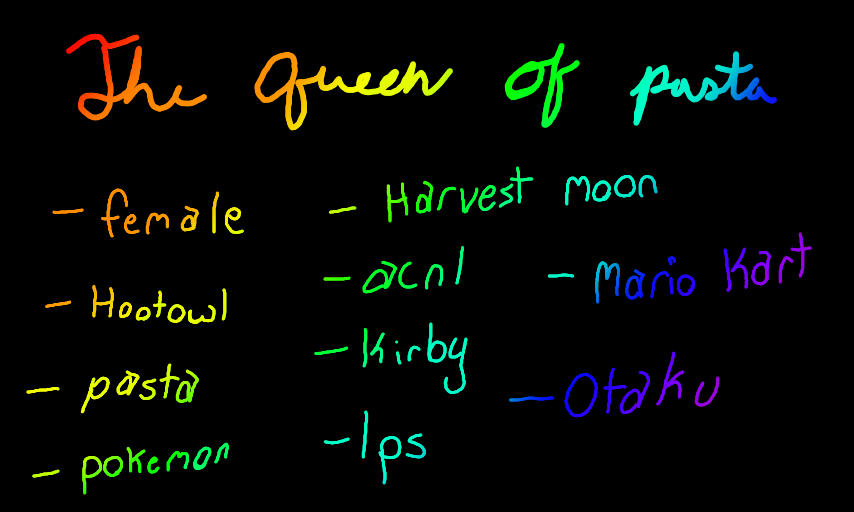 The Queen Of pasta
- female
- Hootowl
- pasta
- pokemon
- Harvest moon
- acnl
- Kirby
- lps
- Mario Kart
- Otaku